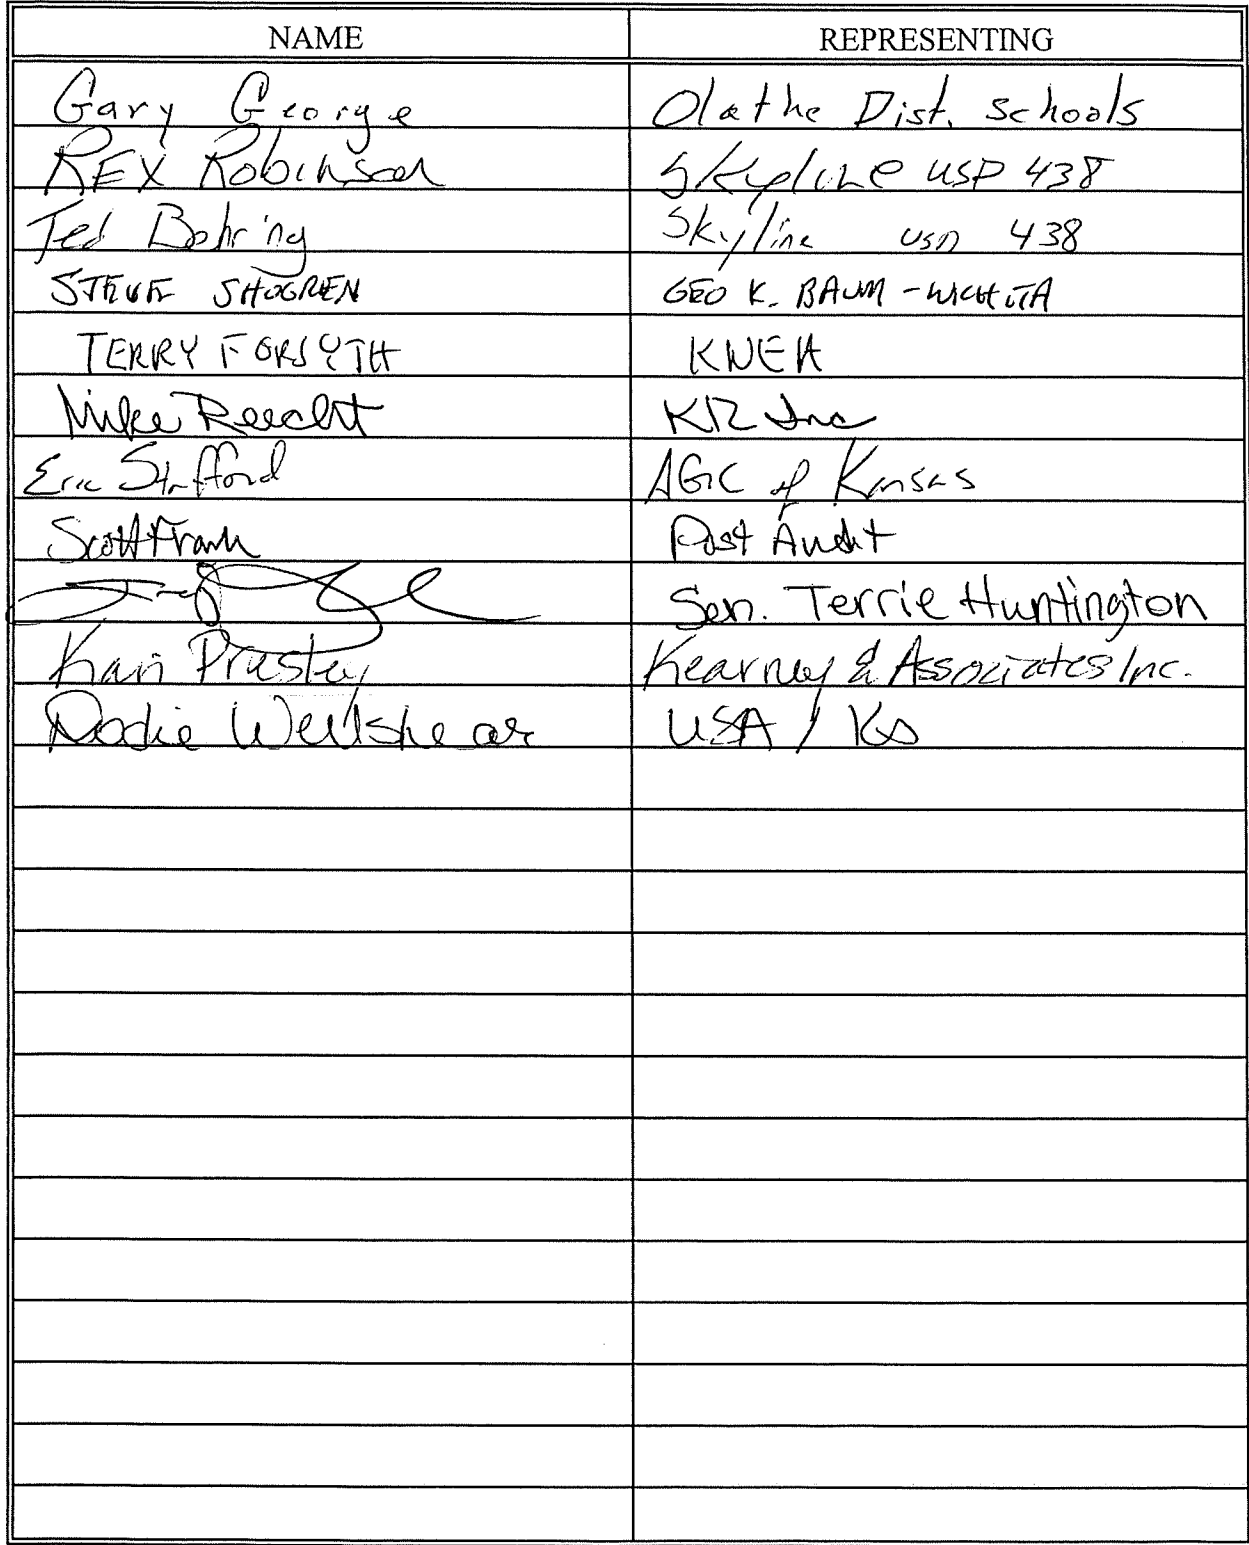 NAME REPRESENTING
Gary George Olathe Dist. Schools
REX Robinson Skyline USD 438
Ted Bohring Skyline USD 438
STEVE SHOGREN GEO K. BAUM - WICHITA
TERRY FORSYTH KNEA
Mike Reecht
Eric Stafford AGC of Kansas
Scott Frank Post Audit
Sen. Terrie Huntington
Kari Presley Kearney & Associates Inc.
Dodie Wellshear USA / Ks